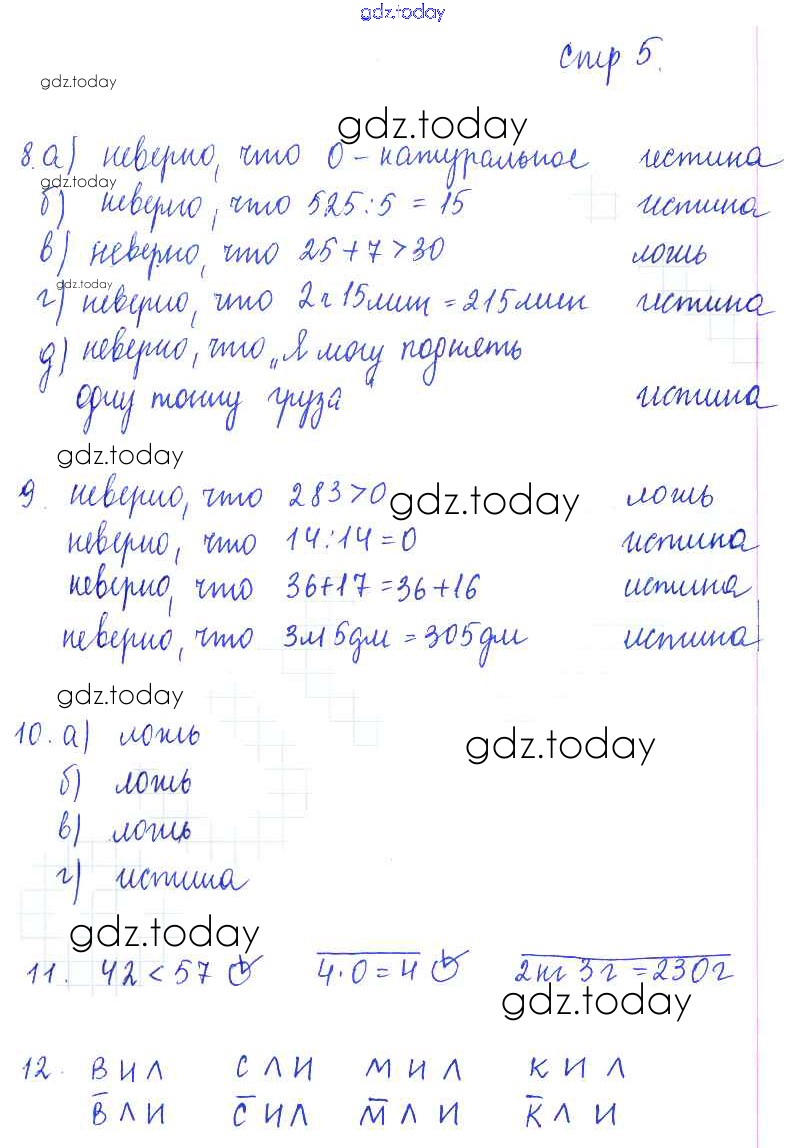 gdz.today
стр 5.
gdz.today
gdz.today
8. а) неверно, что 0 - натуральное истина
gdz.today
б) неверно, что 525:5 = 15 истина
в) неверно, что 25+7>30 ложь
gdz.today
г) неверно, что 2ч 15мин = 215мин истина
д) неверно, что „Я могу поднять
одну тонну груза“ истина
gdz.today
9. неверно, что 283>0 ложь
gdz.today
неверно, что 14:14=0 истина
неверно, что 36+17=36+16 истина
неверно, что 3м 5дм = 305дм истина
gdz.today
10. а) ложь
gdz.today
б) ложь
в) ложь
г) истина
gdz.today
11. 42 < 57 4·0=4 2кг 3г = 230г
gdz.today
12. В И Л С Л И М И Л К И Л
В̅ Л И С̅ И Л М̅ Л И К̅ Л И